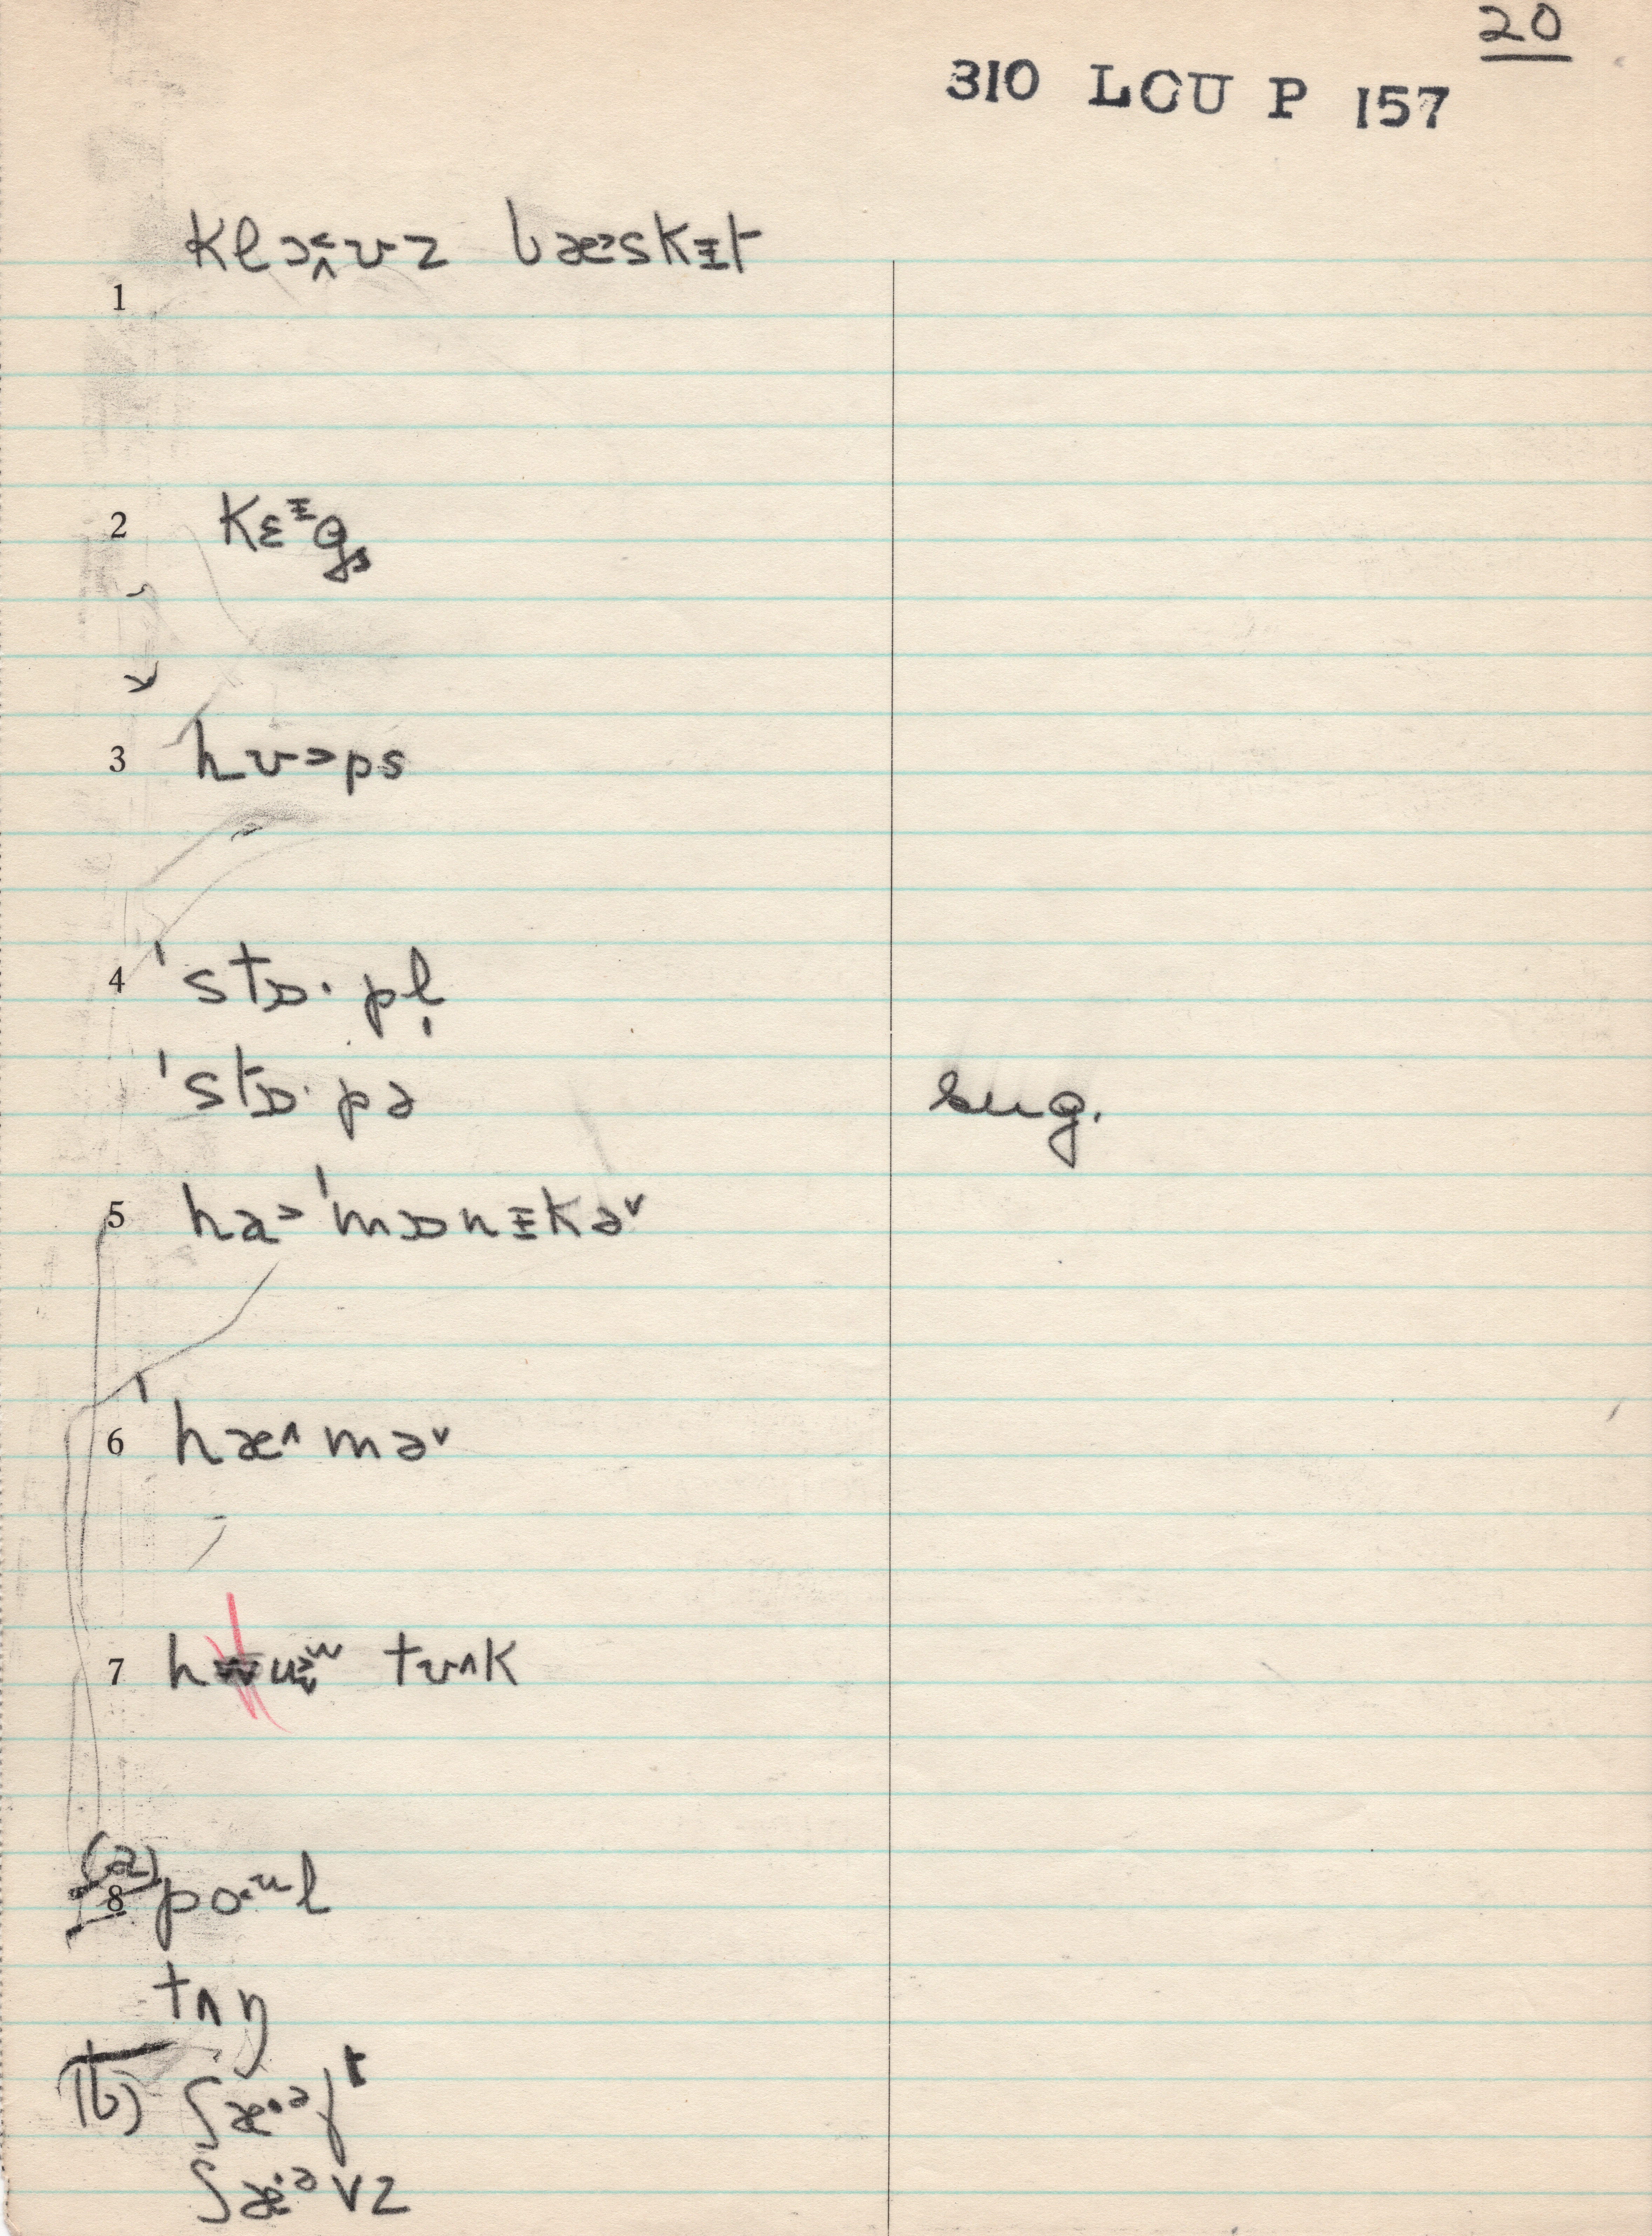 20
310 LCU P 157
1 klɔ˂˄ʊz bæ˃skᵻt
2 kɛᵻgs
3 hʊ˃ps
4 ˈstɒ·pl̩
ˈstɒ·pə sug.
5 ha˃ˈmɒnᵻkə˅
6 ˈhæ˄mə˅
7 hu˃˅ʷ tʊ˄k
(a) 8 po·ᵘl
tʌŋ
(b) ʃæ·ᵊft
ʃæ·ᵊvz